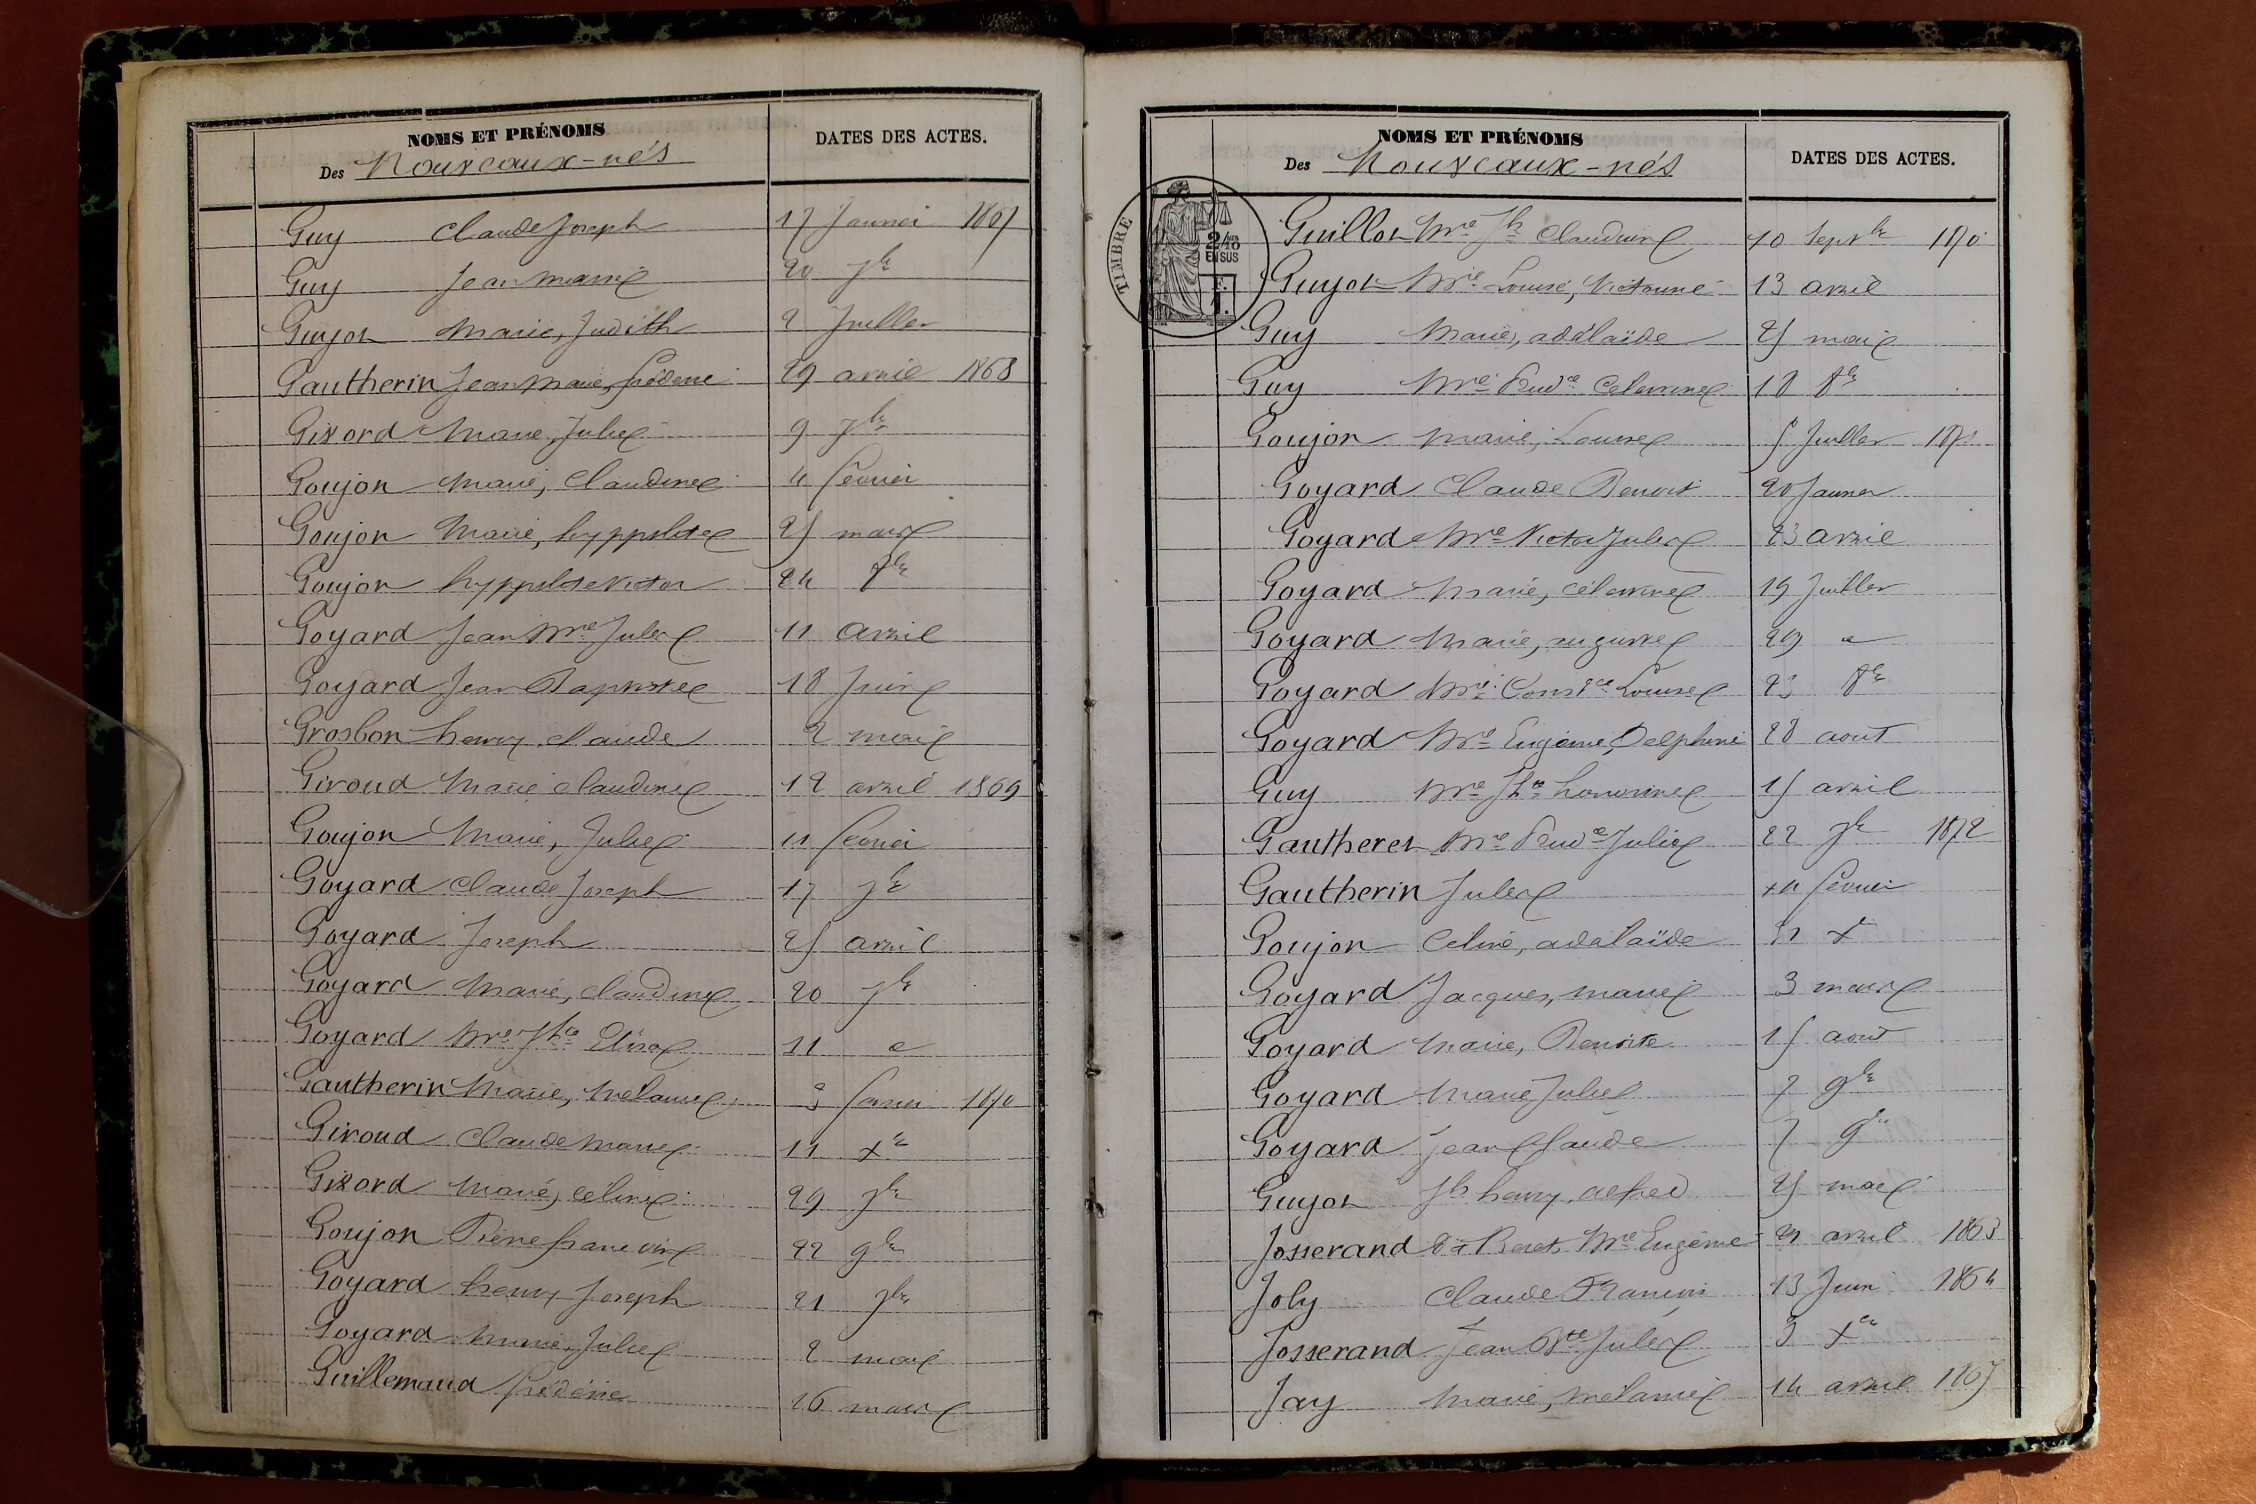 NOMS ET PRÉNOMS
DATES DES ACTES.
Des Nouveaux-nés
Guy Claude Joseph 17 Janvier 1867
Guy Jean Marie 20 7bre
Guyot Marie, Judith 2 Juillet
Gautherin Jean Marie, frédéric 29 avril 1868
Gixord Marie, Julie 9 7bre
Goujon Marie, Claudine 4 février
Goujon Marie, hyppolite 25 mars
Goujon hyppolite Victor 24 8bre
Goyard Jean Mie Jules 11 avril
Goyard Jean Baptiste 18 Juin
Grosbon henry Claude 2 mai
Giroud Marie Claudine 12 avril 1869
Goujon Marie, Julie 11 février
Goyard Claude Joseph 17 7bre
Goyard Joseph 25 avril
Goyard Marie, Claudine 20 7bre
Goyard Mie Jhe Elisa 11 "
Gautherin Marie, Mélanie 3 février 1870
Giroud Claude Marie 11 Xbre
Gixord Marie, Céline 29 7bre
Goujon Pierre 22 9bre
Goyard henry Joseph 21 7bre
Goyard Marie, Julie 2 mai
Guillemaud frédéric 16 mars
NOMS ET PRÉNOMS
DATES DES ACTES.
Des Nouveaux-nés
TIMBRE
2/10
EN SUS
Guillot Mie Jh Claudine 10 Septbre
Guyot Mie Louise, Victorine 13 avril
Guy Marie, adélaïde 25 mai
Guy Mie Prudce Célestine 18 8bre
Goujon Marie, Louise 5 Juillet
Goyard Claude Benoit 20 Janvier
Goyard Mie Victor Jules 23 avril
Goyard Marie, Célestine 19 Juillet
Goyard Marie, augustine 29 "
Goyard Mie Constce Louise 23 8bre
Goyard Mie Eugénie, Delphine 28 aout
Guy Mie Jhe honorine 15 avril
Gautheret Mie Prudce Julie 22 7bre 1872
Gautherin Jules février
Goujon Celine, adélaïde X
Goyard Jacques, Marie 3 mars
Goyard Marie, Benoite 15 aout
Goyard Marie Julie 7 9bre
Goyard Jean Claude 7 9bre
Guyot Jh henry alfred 25 mai
Josserand dit Beret Mie Eugénie avril 1863
Joly Claude François 13 Juin 1864
Josserand Jean Bte Jules 3 Xbre
Jay Marie, Mélanie 14 avril 1867